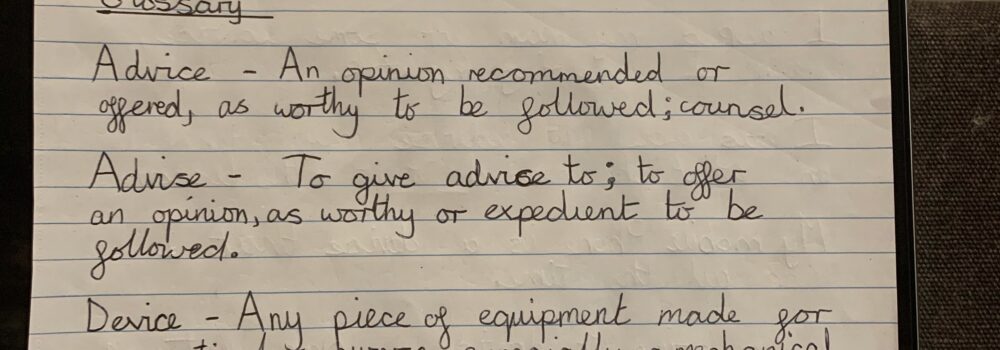 Glossary
Advice - An opinion recommended or
offered, as worthy to be followed; counsel.
Advise - To give advice to; to offer
an opinion, as worthy or expedient to be
followed.
Device - Any piece of equipment made for
a mechanical